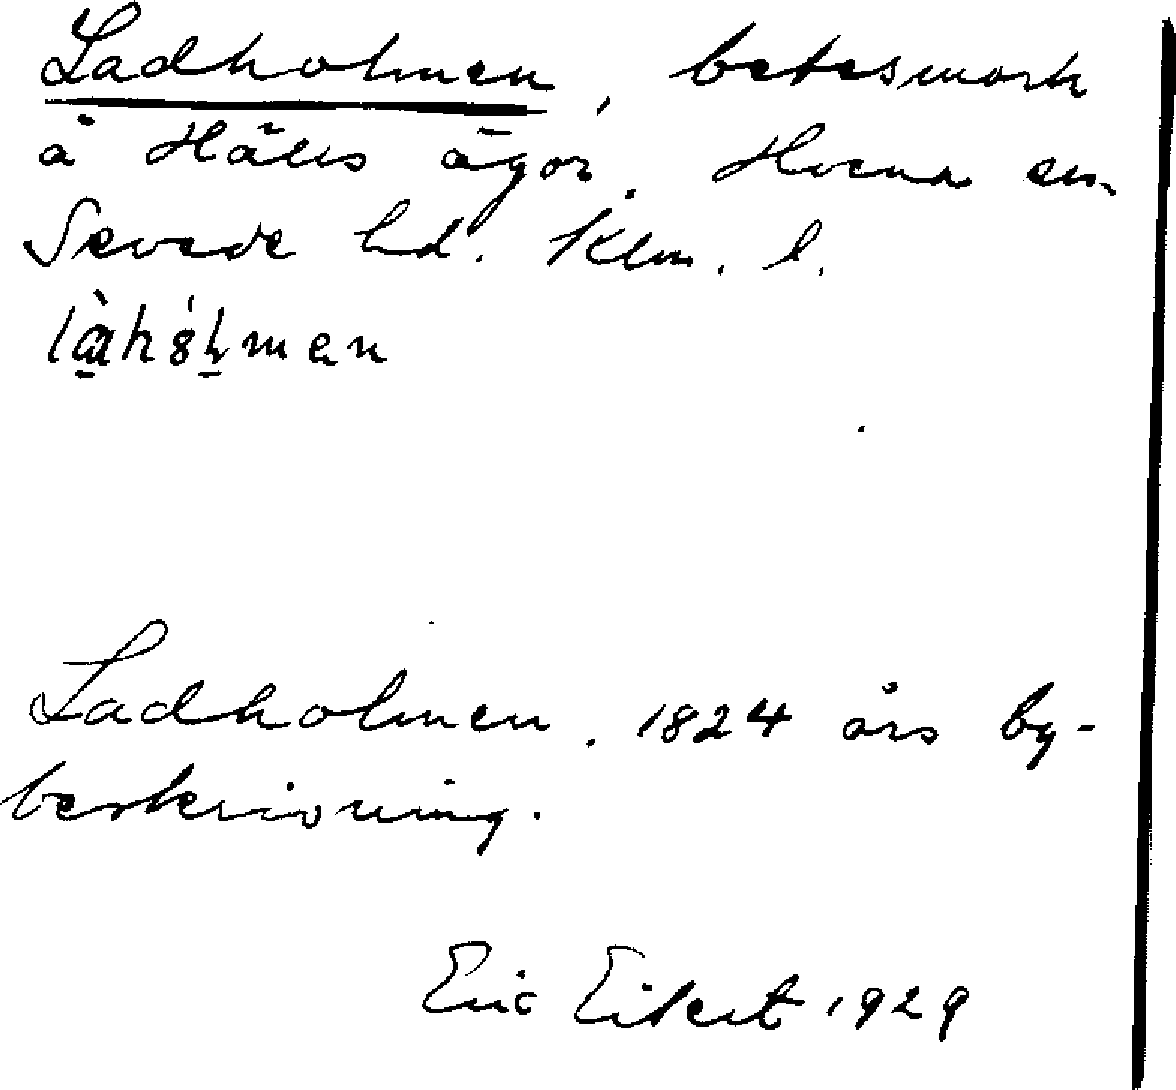 Ladholmen, betesmark
å Hälls ägor. Hvena sn.
Sevede hd. Klm. l.
Ladholmen. 1824 års by-
beskrivning.
Eric Eikert 1929